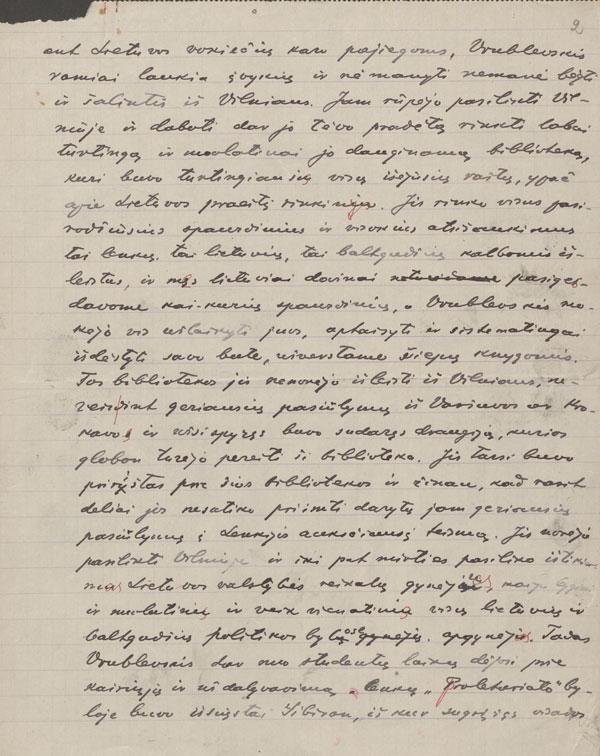 2
ant Lietuvos vokiečių karo pajiegoms, Vrublevskis
ramiai laukia įvykių ir nė manyti nemanė bėgti
ir šalintis iš Vilniaus. Jam rūpėjo pasilikti Vil-
niuje ir daboti dar jo tėvo pradėtą rinkti labai
turtingą ir nuolatinai jo dauginamą biblioteką,
kuri buvo turtingiausių visų išėjusių raštų, ypač
apie Lietuvos praeitį rinkinys. Jis rinko visus pasi-
rodžiusius spausdinius ir visokius atsišaukimus
tai lenkų, tai lietuvių, tai baltgudžių kalbomis iš-
leistus, ir mes lietuviai dažnai pasiges-
davome kai-kurių spausdinių, o Vrublevskis mo-
kėjo vis užlaikyti juos, aptaisyti ir sistematingai
išdėstyti savo bute, užverstame šiepų knygomis.
Tos bibliotekos jis nenorėjo išleisti iš Vilniaus, ne-
veizdint geriausių pasiūlymų iš Varšuvos ar Kro-
kuvos ir užsispyręs buvo sudaręs draugiją, kurios
globon turėjo pereiti ši biblioteka. Jis tarsi buvo
pririštas prie šios bibliotekos ir žinau, kad rasit
dėliai jos nesutiko priimti darytų jam geriausių
pasiūlymų į Lenkijos aukščiausį teismą. Jis norėjo
pasilikti Vilniuje ir iki pat mirties pasiliko ištiki-
mas Lietuvos valstybės reikalų gynėjas, kaipo
ir nuolatinis ir veik vienatinis visų lietuvių ir
baltgudžių politikos bylose gynėjas, apgynėjas. Tadas
Vrublevskis dar nuo studentų laikų dėjosi prie
kairiųjų ir už dalyvavimą lenkų „Proletariato" by-
loje buvo išsiųstas Sibiran, iš kur sugrįžęs visados